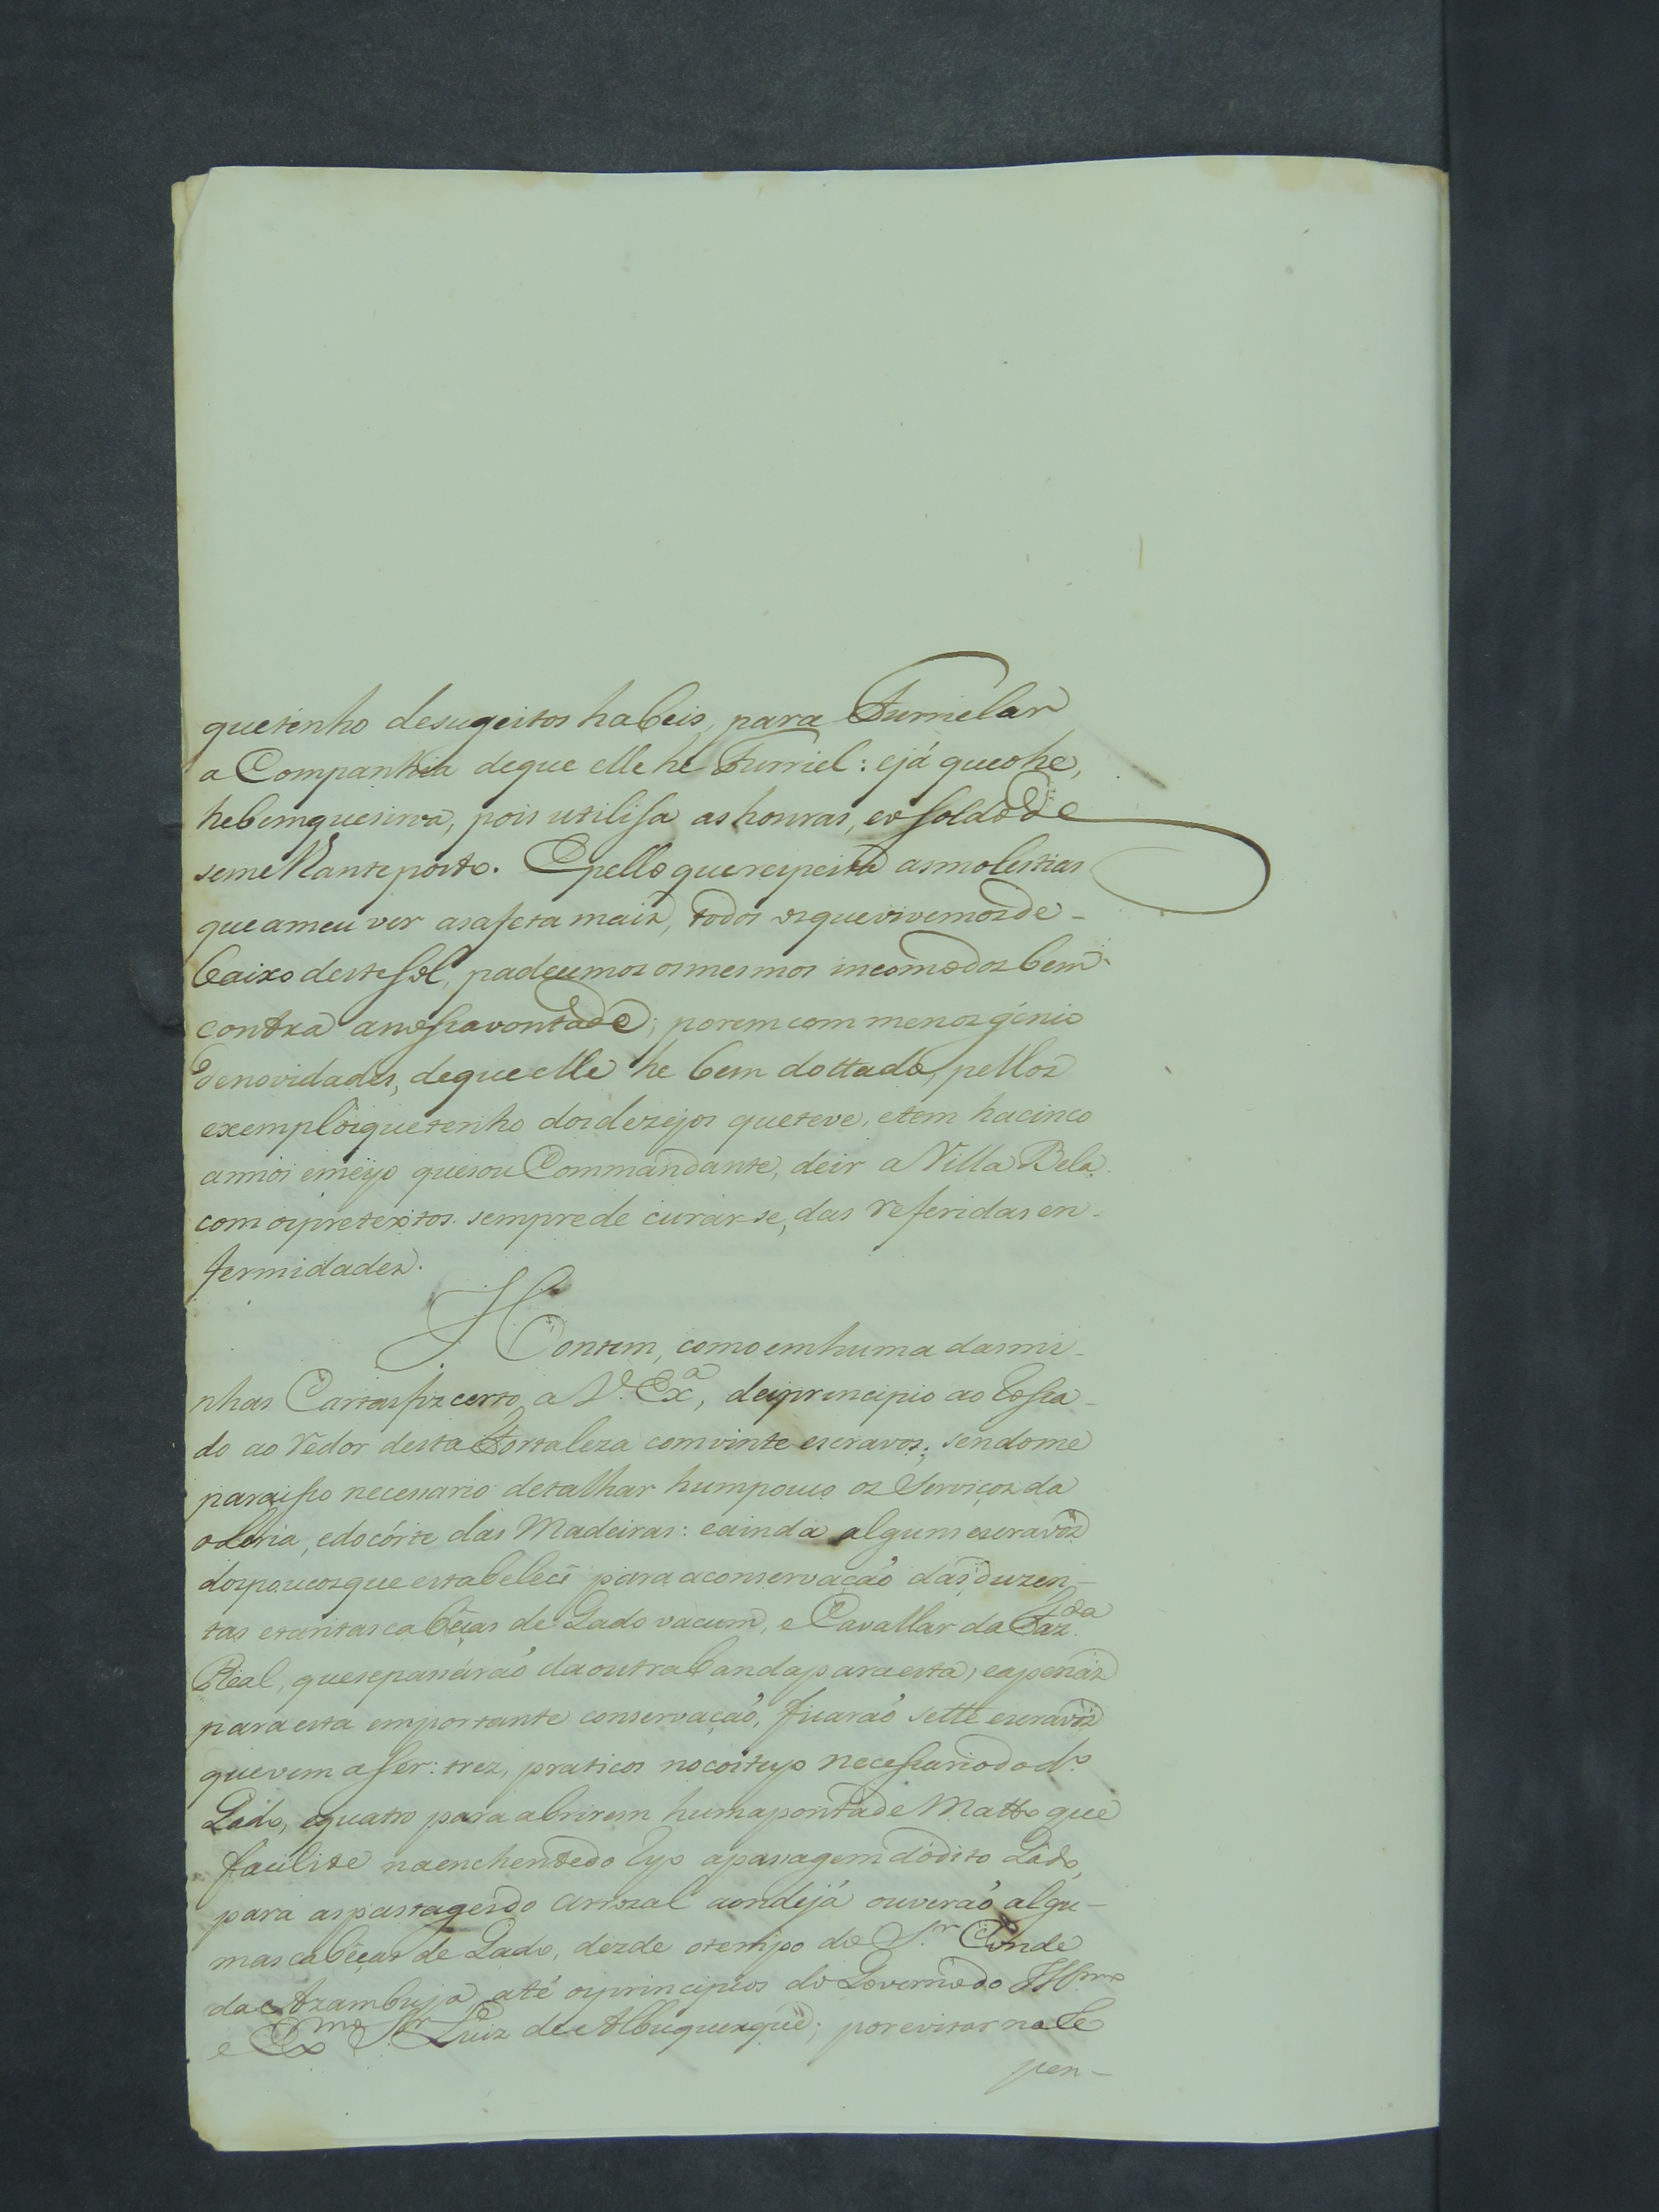 que tenho de sugeitos habeis, para Furrielar
a Companhia de que elle he Furriel: e já que o he,
he bem que sirva, pois utilisa as honras, e o soldo de
semelhante posto. E pello que respeita as molestias
que a meu ver as afeta mais, todos os que vivemos de-
baixo deste sol, padecemos os mesmos incomodos bem
contra a nossa vontade; porem com menos génio
de novidades, de que elle he bem dottado, pellos
exemplos que tenho dos dezejos que teve, e tem ha cinco
annos e meyo que sou Commandante, de ir a Villa Bela
com os pretextos sempre de curar-se, das referidas en-
fermidades.
Hontem, como em huma das mi-
nhas Cartas fiz certo a V. Exª, dei principio ao
do ao redor desta Fortaleza com vinte escravos; sendome
para isso necessario detalhar hum pouco os Serviços da
olaria, e do córte das Madeiras: e ainda alguns escravos
dos poucos que estabeleci para a conservação das duzen-
tas e tantas cabêças de Gado vacum, e Cavallar da Fazda
Real, que se passárão da outra banda para esta, e apenas
para esta emportante conservação, ficarão sette escravos
que vem a ser: trez, praticos no costeyo necessario do do
Gado, e quatro para abrirem huma ponta de Matto que
facilite na enchente do Ryo a passagem do dito Gado,
para as pastagens do arrozal aonde já ouverão algu-
mas cabêças de Gado, dezde o tempo do Sr Conde
da Azambuja até os principios do Governo do Illmo
e Exmo Sr Luiz de Albuquerque; por evitar na
pen-